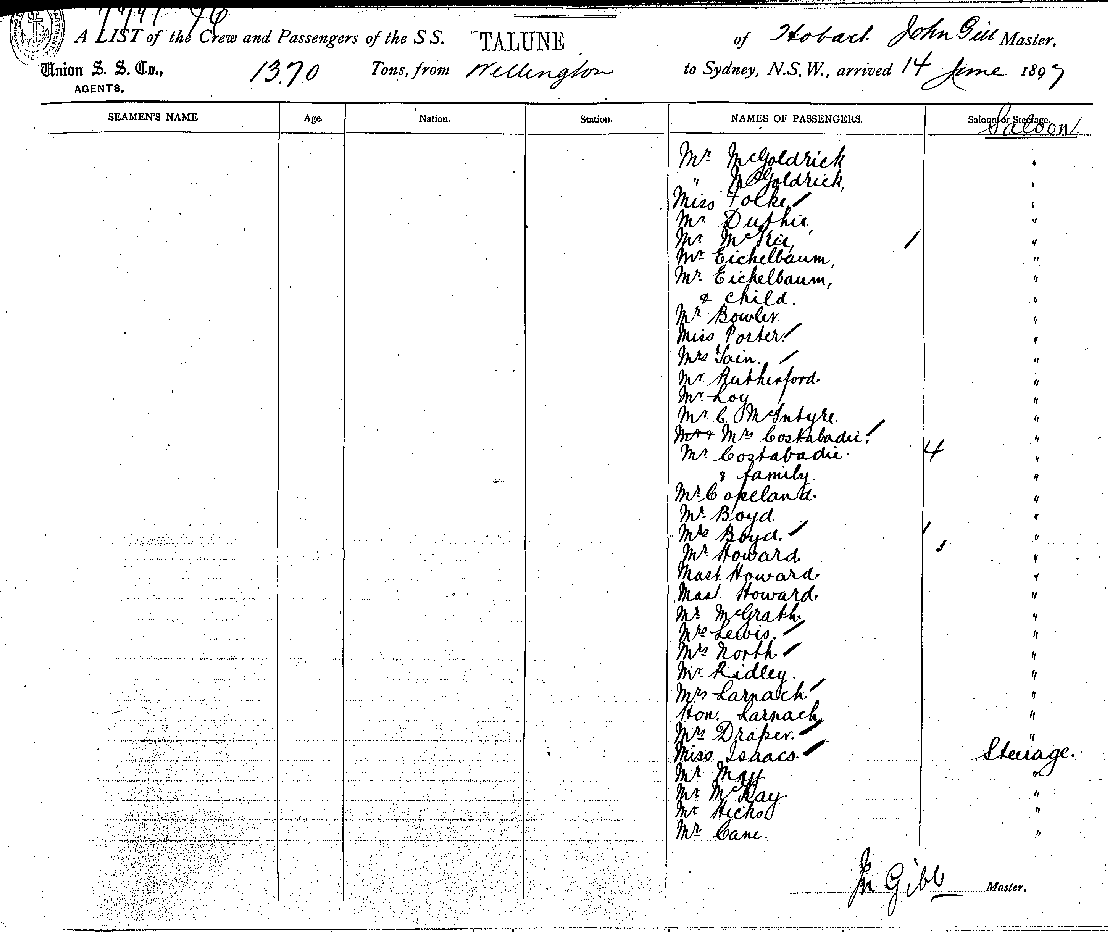 A LIST of the Crew and Passengers of the S S. TALUNE of Hobart John Gibb Master,
Union S. S. Co., 1370 Tons, from Wellington to Sydney, N.S.W., arrived 14 June 1897
AGENTS.
SEAMEN'S NAME Age. Nation. Station. NAMES OF PASSENGERS. Saloon or Steerage.
Saloon
Mr McGoldrick "
" McGoldrick, "
Miss Folke "
Mr Duthie "
Mr "
Mr Eichelbaum, "
Mr Eichelbaum, "
& child. "
Mr Bowler "
Miss Porter "
Mrs "
Mr Rutherford. "
Mr Loy "
Mr C McIntyre "
Mr & Mrs Costabadie "
Mr Costabadie. 4 "
& family. "
Mr Copeland. "
Mr Boyd "
Mrs Boyd. "
Mr Howard "
Mast Howard. "
Mast Howard. "
Mr McGrath, "
Mrs Lewis. "
Mrs North "
Mr Ridley. "
Mrs Larnach "
Hon. Larnach "
Mrs Draper. "
Miss Isaacs Steerage.
Mr May "
Mr McKay "
Mr Hicks "
Mr Cane. "
Jn Gibb Master.